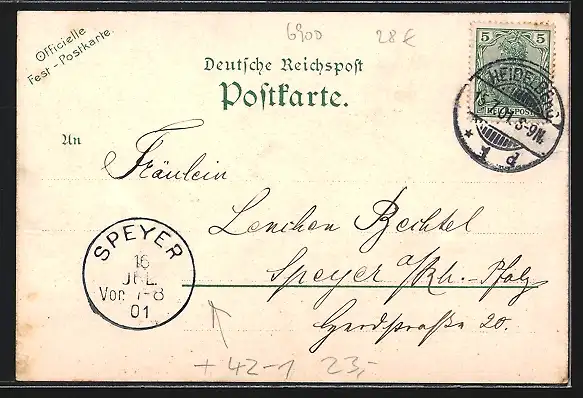 6900 28 €
Officielle
Fest-Postkarte.
Deutsche Reichspost
Postkarte.
5 5
REICHSPOST
HEIDELBERG
7.01. 8-9N.
An
Fräulein
Lenchen Bechtel
Speyer a/Rh.-Pfalz
20.
SPEYER
16
JUL
Vor 7-8
01
+ 42-1 23,-